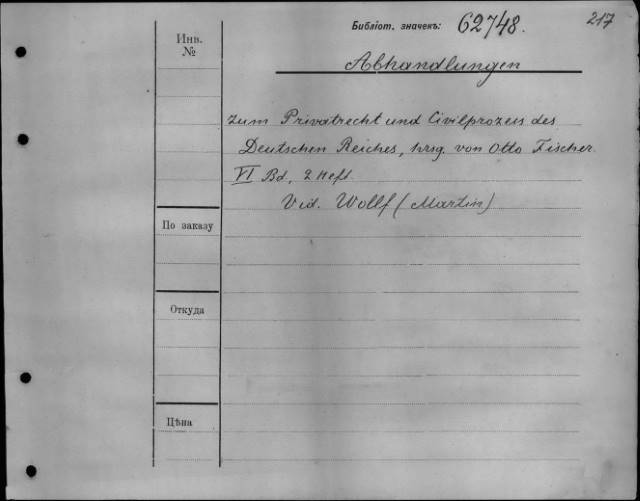 Библіот. значекъ: 62748. 217
Инв.
№
Abhandlungen
zum Privatrecht und Civilprozess des
Deutschen Reiches, hrsg. von Otto Fischer.
VI Bd, 2 Heft.
Vid. Wollf (Martin)
По заказу
Откуда
Цѣна